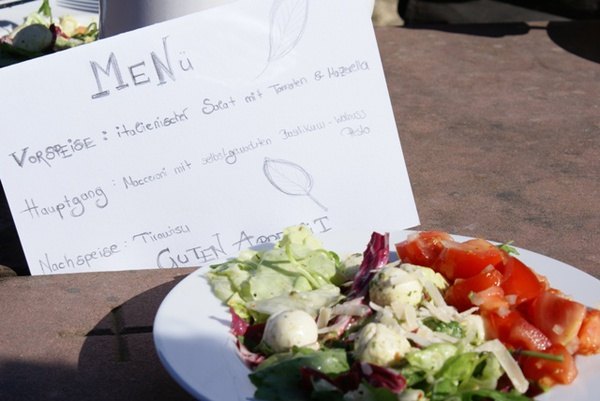 MENü
VORSPEISE: italienischer Salat mit Tomaten & Mozzarella
Hauptgang: Maccaroni mit selbstgemachten Basilikum-Walnuss
Pesto
Nachspeise: Tiramisu
GUTEN APPETIT